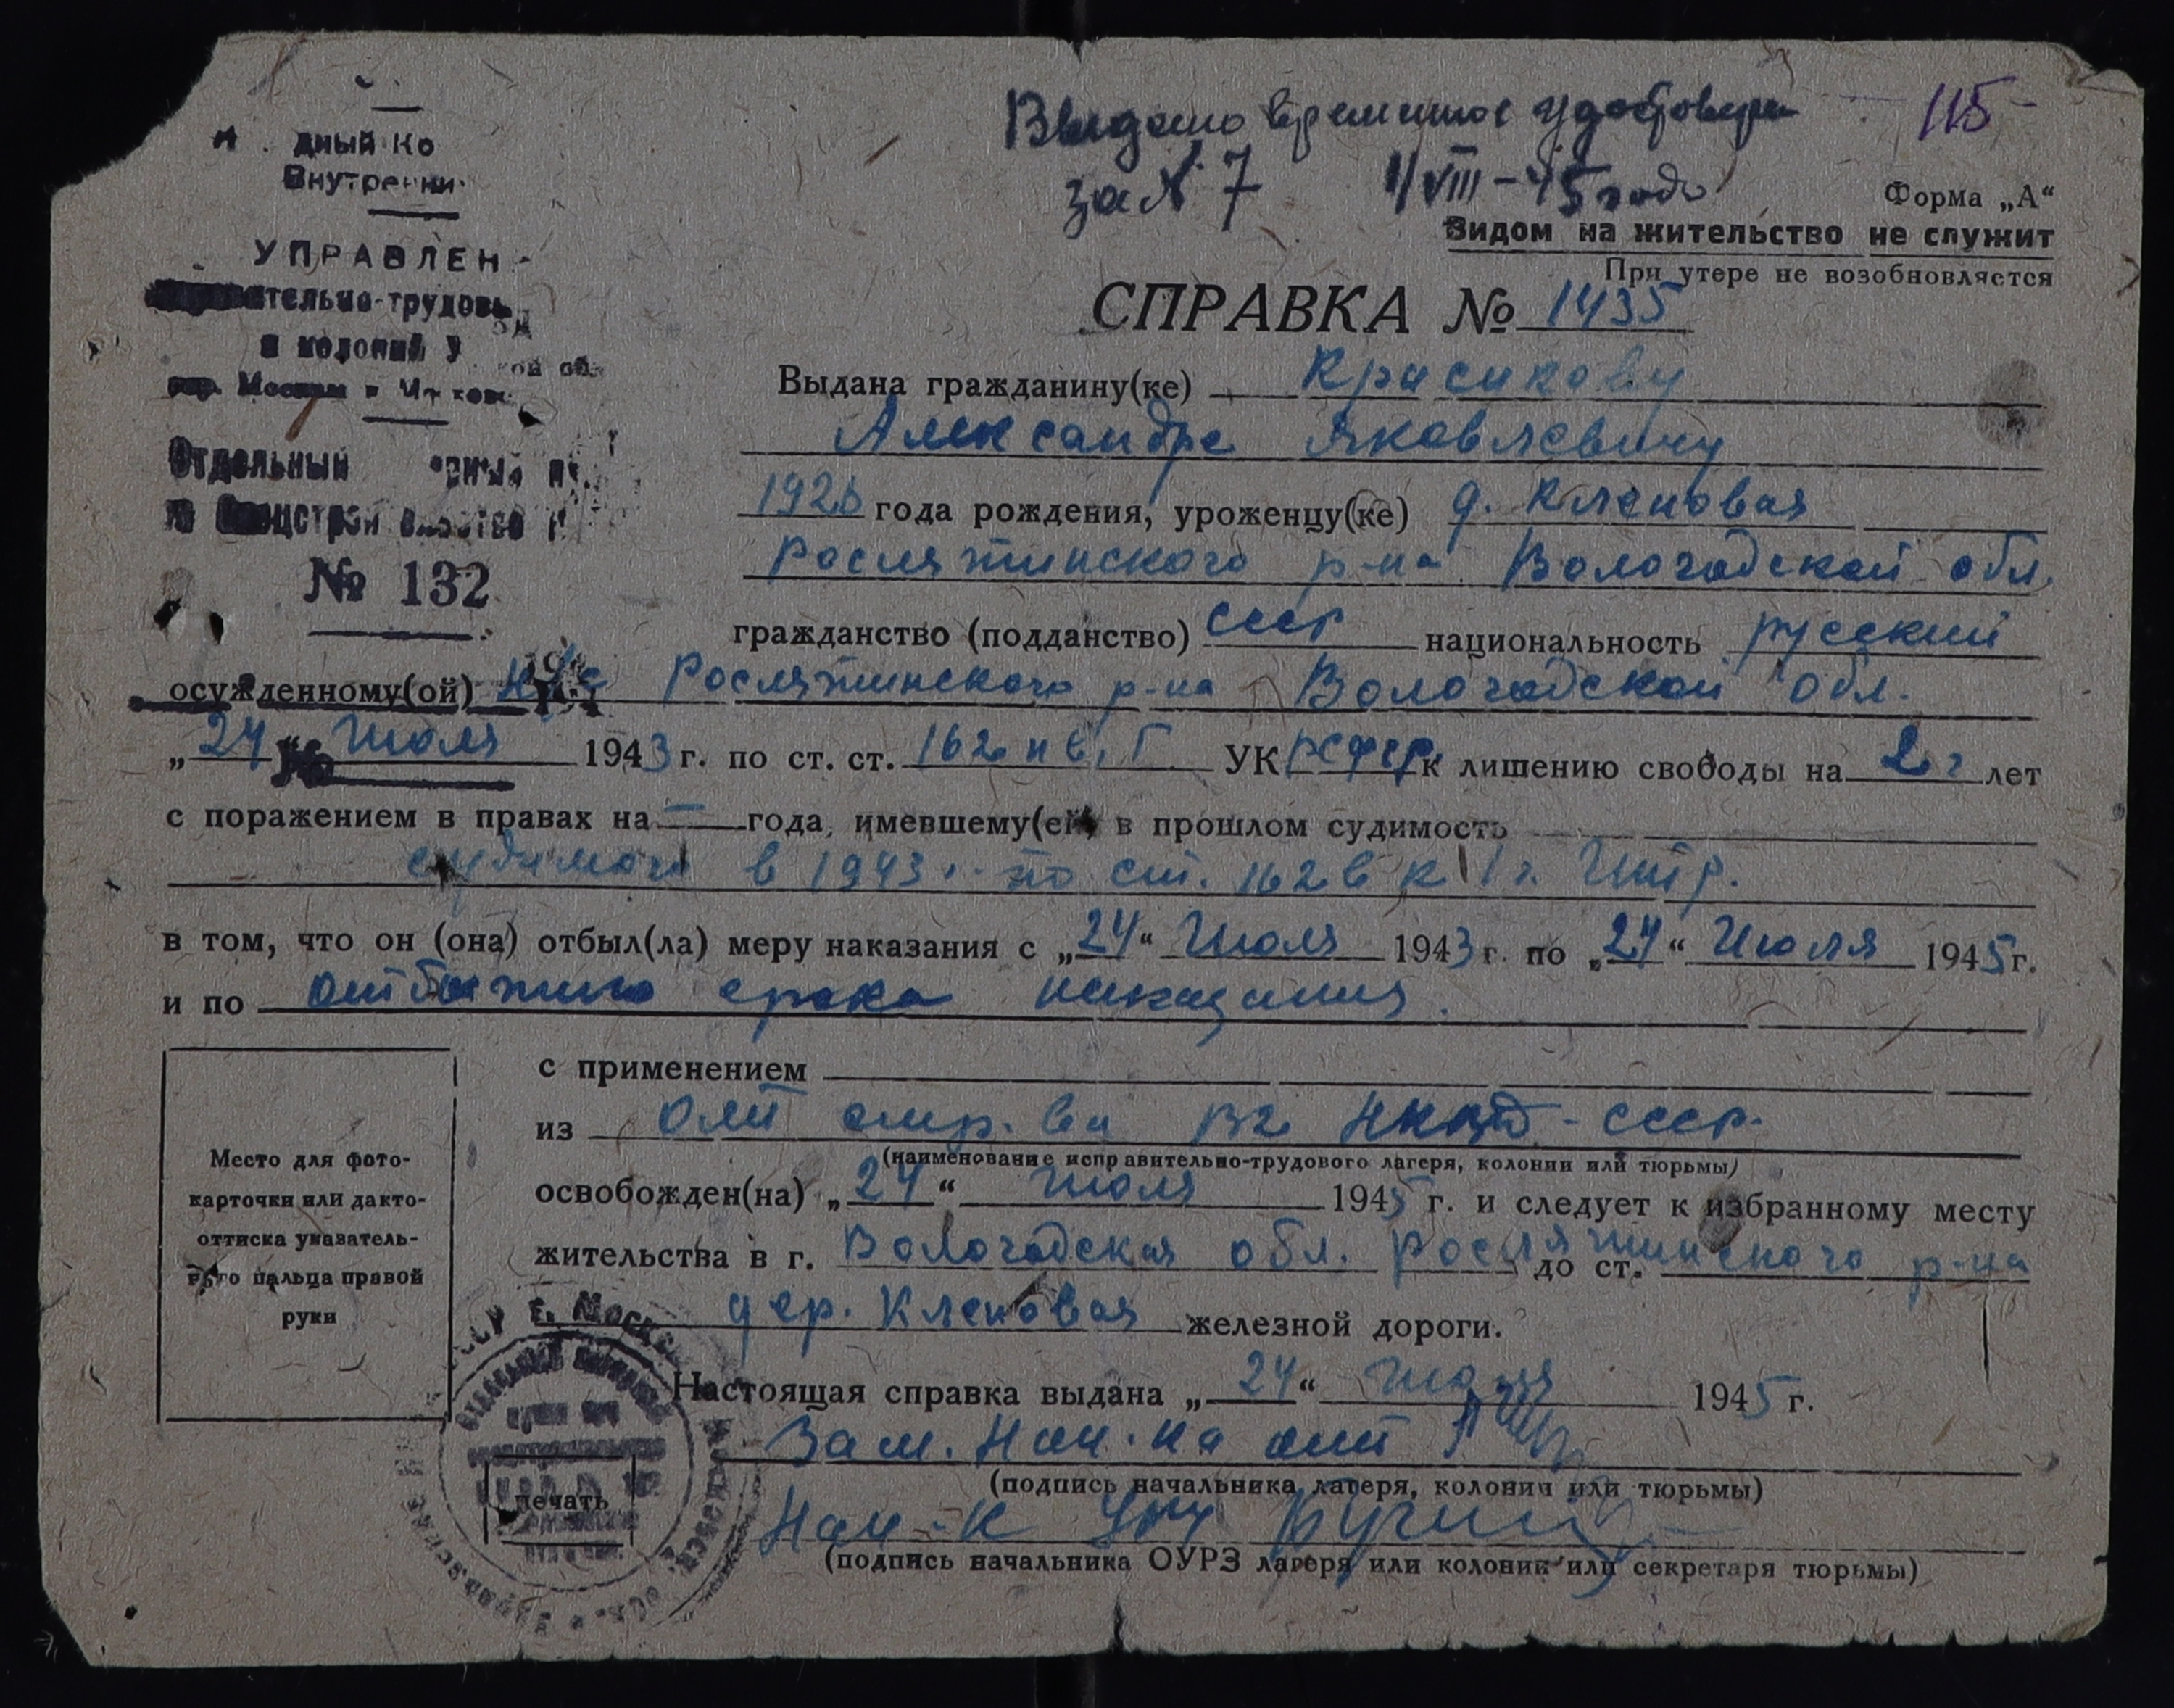 Выдано временное удостоверен
за № 7 1/VIII-45 года
115
дный Ко
Внутренни
УПРАВЛЕН
тельно-трудовы
и колоний У
гор. Москвы и Моско
кой об
Отдельный
№ 132
Форма „А“
Видом на жительство не служит
При утере не возобновляется
СПРАВКА № 1435
Выдана гражданину(ке) Красикову
Александре Яковлевичу
192 года рождения, уроженцу(ке) д. Кленовая
Рослятинского р-на Вологодской обл.
гражданство (подданство) СССР национальность русский
осужденному(ой) н/с Рослятинского р-на Вологодской обл.
„24“ Июля 1943 г. по ст. ст. 162 п в, г УК РСФСР к лишению свободы на 2 г лет
с поражением в правах на — года, имевшему(ей) в прошлом судимость
судимого в 1943 г. по ст. 162 в к 1 г. Итр.
в том, что он (она) отбыл(ла) меру наказания с „24“ Июля 1943 г. по „24“ Июля 1945 г.
и по отбытию срока наказания.
с применением
из ОЛП стр. ва НКВД-СССР.
(наименование исправительно-трудового лагеря, колонии или тюрьмы)
освобожден(на) „24“ июля 1945 г. и следует к избранному месту
жительства в г. Вологодская обл. Рослятинского р-на до ст.
дер. Кленовая железной дороги.
Место для фото-
карточки или дакто-
оттиска указатель-
ного пальца правой
руки
Настоящая справка выдана „24“ июля 1945 г.
Зам. Нач-ка ОЛП
(подпись начальника лагеря, колонии или тюрьмы)
печать
Нач-к
(подпись начальника ОУРЗ лагеря или колонии или секретаря тюрьмы)